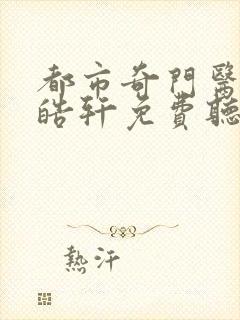 都市奇門醫
皓軒免費聽
熱汗